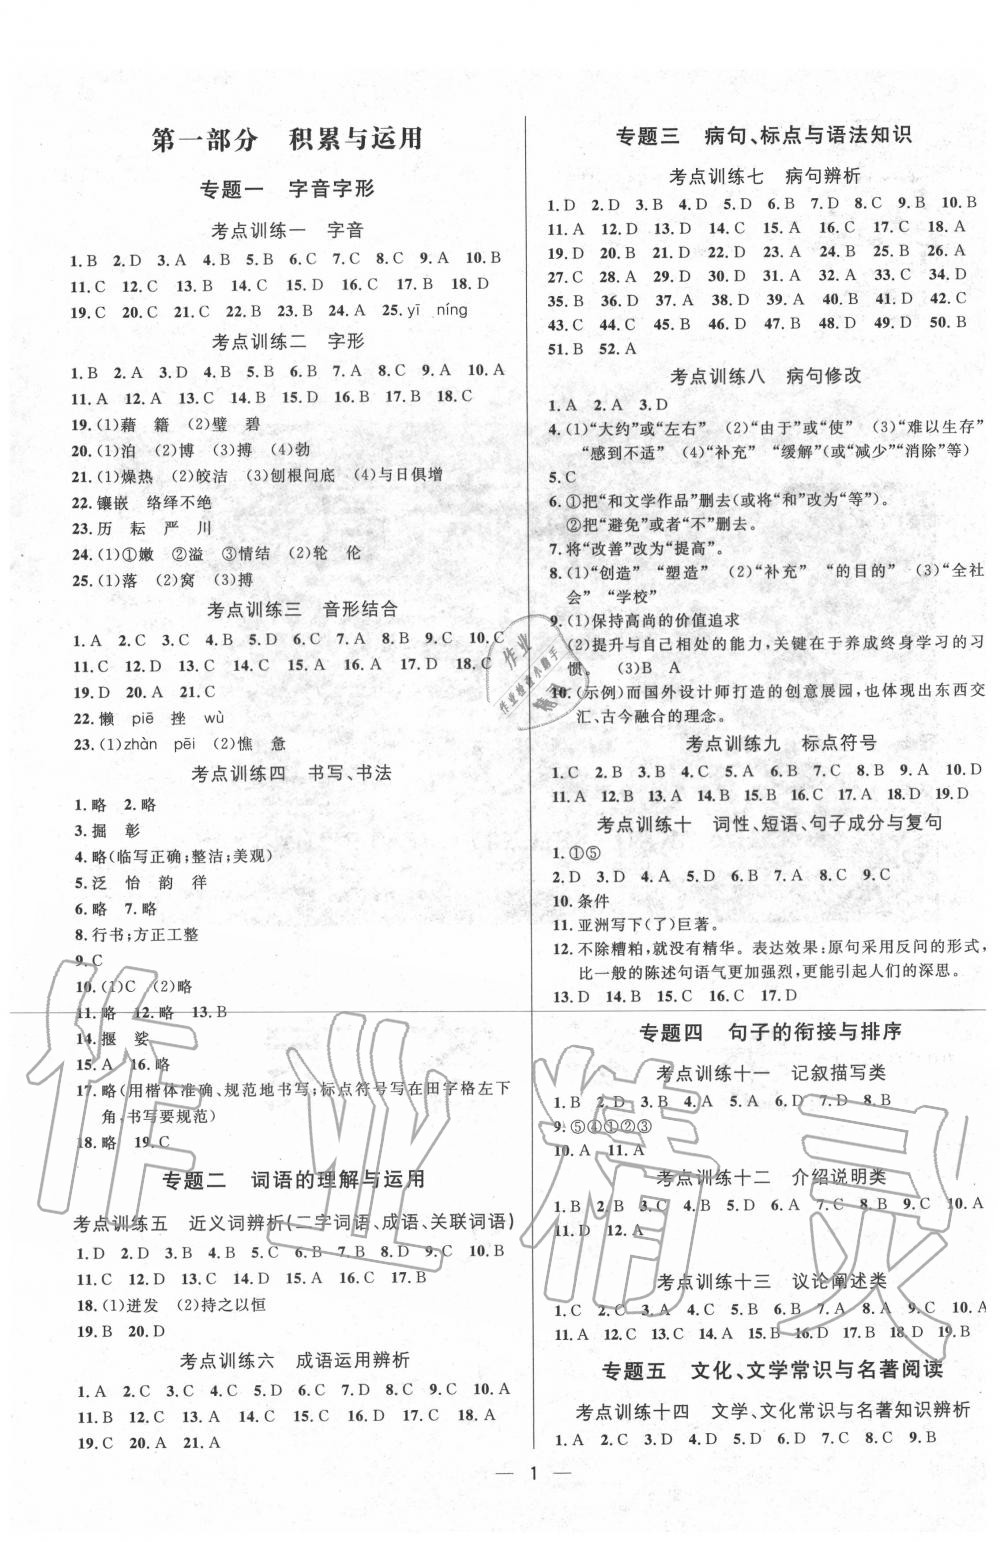 第一部分 积累与运用
专题一 字音字形
考点训练一 字音
1.B 2.D 3.A 4.B 5.B 6.C 7.C 8.C 9.A 10.B
11.C 12.C 13.B 14.C 15.D 16.C 17.B 18.D
19.C 20.C 21.C 22.B 23.B 24.A 25.yī níng
考点训练二 字形
1.B 2.A 3.A 4.C 5.D 6.B 7.D 8.D 9.C 10.B
11.A 12.A 13.C 14.C 15.B 16.B 17.B 18.C
19.(1)藉 籍 (2)璧 碧
20.(1)泊 (2)博 (3)搏 (4)勃
21.(1)燥热 (2)皎洁 (3)刨根问底 (4)与日俱增
22.镶嵌 络绎不绝
23.历 耘 严 川
24.(1)①嫩 ②溢 ③情结 (2)轮 伦
25.(1)落 (2)窝 (3)搏
考点训练三 音形结合
1.A 2.C 3.C 4.B 5.D 6.C 7.A 8.B 9.C 10.C
11.C 12.D 13.C 14.B 15.D 16.D 17.D 18.C
19.D 20.A 21.C
22.懒 piē 挫 wù
23.(1)zhàn pēi (2)憔 惫
考点训练四 书写、书法
1.略 2.略
3.掘 彰
4.略(临写正确;整洁;美观)
5.泛 怡 韵 徉
6.略 7.略
8.行书;方正工整
9.C
10.(1)C (2)略
11.略 12.略 13.B
14.揠 娑
15.A 16.略
17.略(用楷体准确、规范地书写;标点符号写在田字格左下
角,书写要规范)
18.略 19.C
专题二 词语的理解与运用
考点训练五 近义词辨析(二字词语、成语、关联词语)
1.D 2.D 3.B 4.C 5.D 6.B 7.B 8.D 9.C 10.B
11.C 12.C 13.D 14.D 15.C 16.A 17.B
18.(1)迸发 (2)持之以恒
19.B 20.D
考点训练六 成语运用辨析
1.A 2.C 3.C 4.C 5.A 6.C 7.C 8.C 9.C 10.A
11.B 12.C 13.D 14.C 15.C 16.C 17.A 18.A
19.C 20.A 21.A
专题三 病句、标点与语法知识
考点训练七 病句辨析
1.D 2.D 3.B 4.D 5.D 6.B 7.D 8.C 9.B 10.B
11.A 12.D 13.D 14.C 15.A 16.C 17.C 18.A
19.D 20.B 21.D 22.B 23.A 24.B 25.B 26.A
27.C 28.A 29.D 30.D 31.A 32.A 33.C 34.D
35.B 36.B 37.B 38.D 39.A 40.B 41.D 42.C
43.C 44.C 45.B 46.C 47.A 48.D 49.D 50.B
51.B 52.A
考点训练八 病句修改
1.A 2.A 3.D
4.(1)“大约”或“左右” (2)“由于”或“使” (3)“难以生存”
“感到不适” (4)“补充” “缓解”(或“减少”“消除”等)
5.C
6.①把“和文学作品”删去(或将“和”改为“等”)。
②把“避免”或者“不”删去。
7.将“改善”改为“提高”。
8.(1)“创造” “塑造” (2)“补充” “的目的” (3)“全社
会” “学校”
9.(1)保持高尚的价值追求
(2)提升与自己相处的能力,关键在于养成终身学习的习
惯。 (3)B A
10.(示例)而国外设计师打造的创意展园,也体现出东西交
汇、古今融合的理念。
考点训练九 标点符号
1.C 2.B 3.B 4.C 5.C 6.B 7.B 8.A 9.A 10.D
11.A 12.B 13.B 14.B 15.B 16.A 17.C 18.D 19.D
考点训练十 词性、短语、句子成分与复句
1.①⑤
2.D 3.D 4.A 5.C 6.B 7.D 8.B 9.C
10.条件
11.亚洲写下(了)巨著。
12.不除糟粕,就没有精华。表达效果:原句采用反问的形式,
比一般的陈述句语气更加强烈,更能引起人们的深思。
13.D 14.B 15.B 16.C 17.D
专题四 句子的衔接与排序
考点训练十一 记叙描写类
1.B 2.D 3.B 4.A 5.A 6.D 7.B 8.C
9.⑤④①②③
10.A 11.A
考点训练十二 介绍说明类
1.B 2.B 3.B 4.C 5.A 6.C 7.A 8.B 9.C 10.C
11.D 12.A
考点训练十三 议论阐述类
1.C 2.C 3.A 4.C 5.B 6.B 7.A 8.A 9.C 10.A
11.A 12.C 13.A 14.C 15.B 16.A 17.A 18.D 19.B
专题五 文化、文学常识与名著阅读
考点训练十四 文学、文化常识与名著知识辨析
1.A 2.C 3.D 4.B 5.D 6.B 7.C 8.C 9.B
1
作业精灵